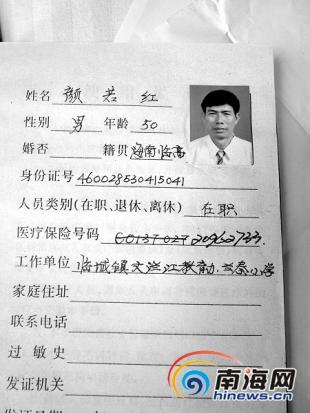 姓名 颜若红
性别 男 年龄 50
婚否 籍贯 海南临高
身份证号 460028530415041
人员类别(在职、退休、离休) 在职
医疗保险号码
工作单位 临城镇文
家庭住址
联系电话
过敏史
发证机关
南海网
hinews.cn